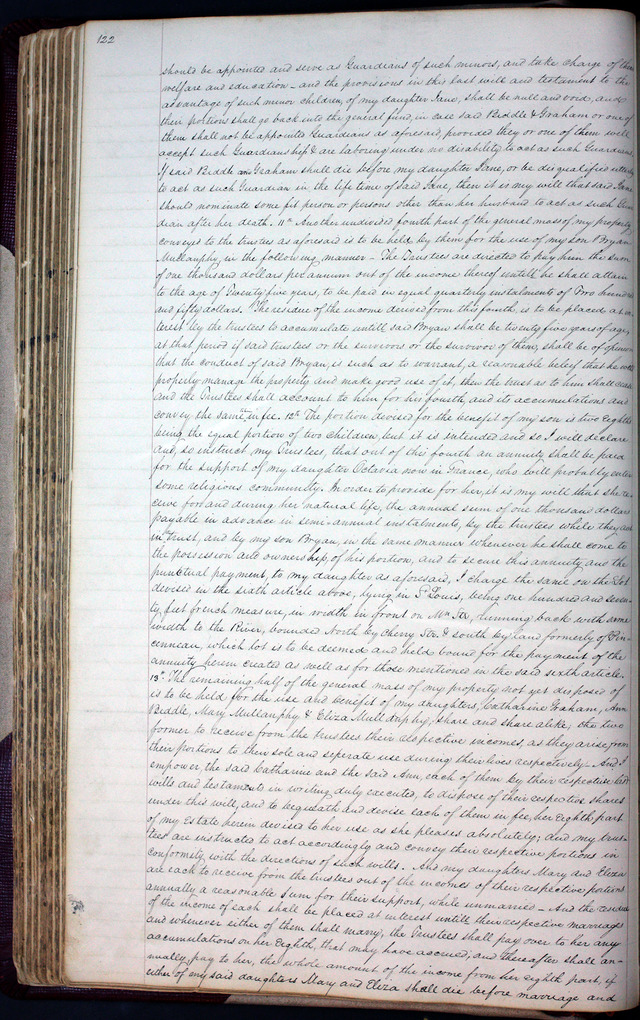 122
should be appointed and serve as Guardians of such minors, and take charge of their
welfare and education – and the provisions in this last will and testament to the
advantage of such minor children, of my daughter Jane, shall be null and void, and
their portions shall go back into the general fund, in case said Biddle & Graham or one of
them shall not be appointed Guardians as aforesaid, provided they or one of them will
accept such Guardianship & are laboring under no disability to act as such Guardians
If said Biddle and Graham shall die before my daughter Jane, or be disqualified
to act as such Guardian in the life time of said Jane, then it is my will that said Jane
should nominate some fit person or persons other than her husband to act as such Guar
dian after her death. 11th Another undivided fourth part of the general mass of my property
conveyed to the trustees as aforesaid is to be held by them for the use of my son Bryan
Mullanphy, in the following manner – The Trustees are directed to pay him the sum
of one thousand dollars per annum out of the income thereof untill he shall attain
to the age of Twenty five years, to be paid in equal quarterly instalments of Two hundred
and fifty dollars. The residue of the income derived from this fourth, is to be placed at in
terest by the trustees to accumulate untill said Bryan shall be twenty five years of age,
at that period if said trustees or the survivors or the survivor of them, shall be of opinion
that the conduct of said Bryan, is such as to warrant, a reasonable belief that he will
properly manage the property and make good use of it, then the trust as to him shall cease
and the Trustees shall account to him for his fourth, and its accumulations and
convey the same in fee. 12th The portion devised for the benefit of my son is two Eighths
being the equal portion of two children, but it is intended and so I will declare
and, so instruct my Trustees, that out of this fourth an annuity shall be paid
for the support of my daughter Octavia now in France, who will probably enter
some religious community. In order to provide for her, it is my will that she re
ceive for and during her natural life, the annual sum of one thousand dollars
payable in advance in semi-annual instalments, by the trustees while they are
in trust, and by my son Bryan, in the same manner whenever he shall come to
the possession and ownership, of his portion, and to secure this annuity and the
punctual payment, to my daughter as aforesaid, I charge the same on the Lot
devised in the sixth article above, lying in St Louis, being one hundred and seven-
ty feet french measure, in width in front on Mn Str, running back with same
width to the River, bounded North by Cherry Str. & south by land formerly of Pin
cenneau, which lot is to be deemed and held bound for the payment of the
annuity herein created as well as for those mentioned in the said sixth article –
13th The remaining half of the general mass of my property not yet disposed of
is to be held for the use and benefit of my daughters, Catharine Graham, Ann
Biddle, Mary Mullanphy & Eliza Mullanphy, share and share alike, the two
former to receive from the trustees their respective incomes, as they arise from
their portions to their sole and seperate use during their lives respectively – And I
empower the said Catharine and the said Ann, each of them by their respective last
wills and testaments in writing duly executed, to dispose of their respective shares
under this will, and to bequeath and devise each of them in fee, her Eighth part
of my Estate herein devised to her use as she pleases absolutely; and my trus-
tees are instructed to act accordingly and convey their respective portions in
conformity, with the directions of such wills. And my daughters Mary and Eliza
are each to receive from the trustees out of the incomes of their respective portions
annually a reasonable sum for their support, while unmarried – And the residue
of the income of each shall be placed at interest untill their respective marriages
and whenever either of them shall marry, the Trustees shall pay over to her any
accumulations on her Eighth, that may have accrued, and thereafter shall an-
nually pay to her, the whole amount of the income from her eighth part, if
either of my said daughters Mary and Eliza shall die before marriage and